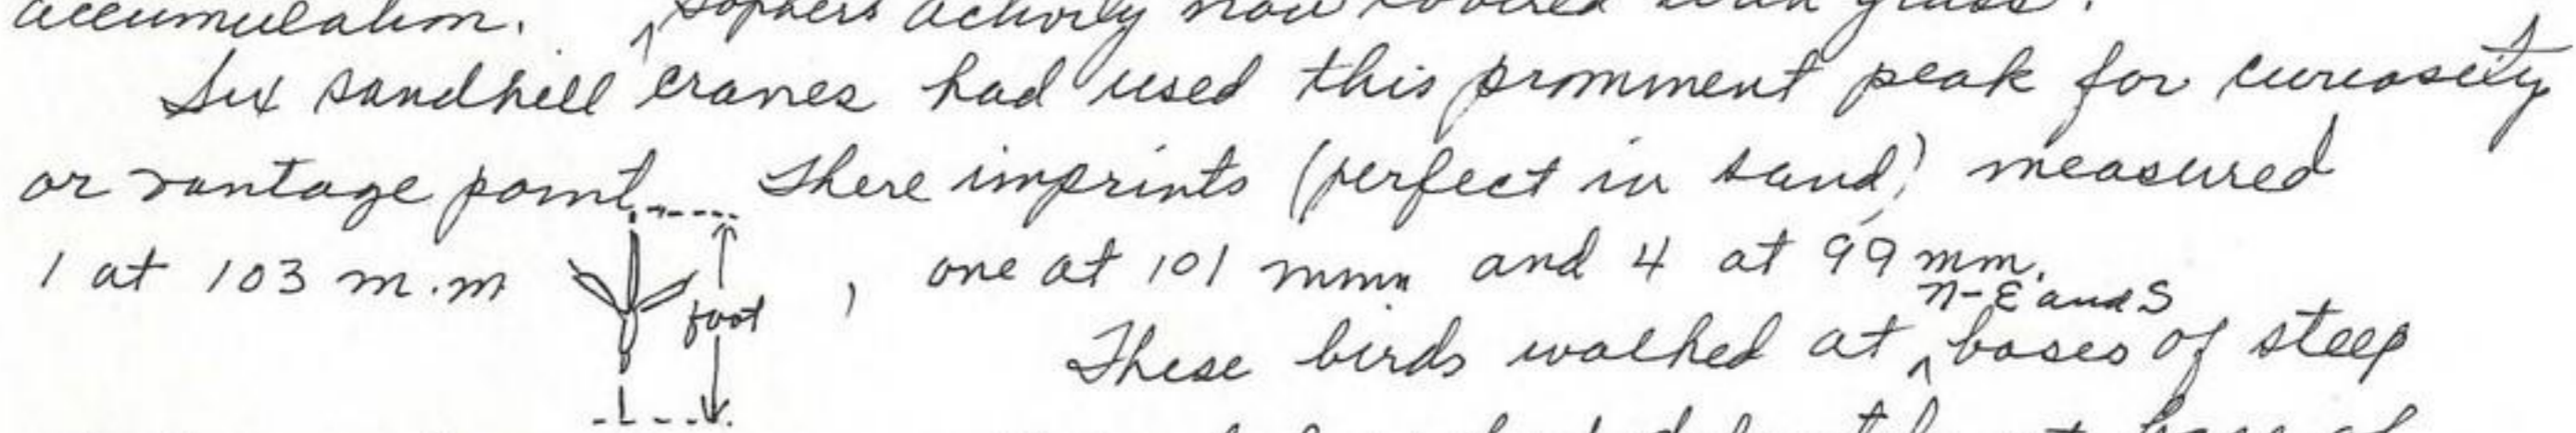 accumulation. ^ gophers activity now covered with grass.
Six sandhill cranes had used this prominent peak for curiosity
or vantage point. There imprints (perfect in sand) measured
1 at 103 m.m foot , one at 101 mm and 4 at 99 mm.
N-E and S
These birds walked at ^ bases of steep